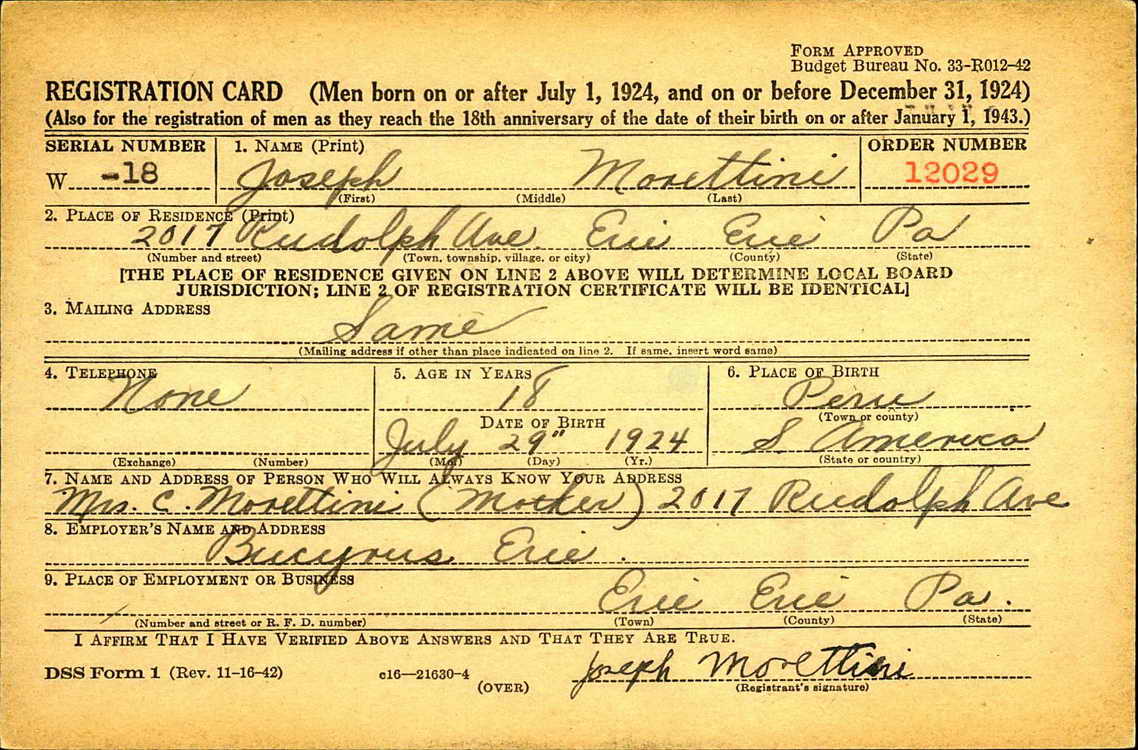 FORM APPROVED
Budget Bureau No. 33-R012-42
REGISTRATION CARD (Men born on or after July 1, 1924, and on or before December 31, 1924)
(Also for the registration of men as they reach the 18th anniversary of the date of their birth on or after January 1, 1943.)
SERIAL NUMBER 1. NAME (Print) ORDER NUMBER
W -18 Joseph Morettini 12029
(First) (Middle) (Last)
2. PLACE OF RESIDENCE (Print)
2017 Rudolph Ave. Erie Erie Pa
(Number and street) (Town, township, village, or city) (County) (State)
[THE PLACE OF RESIDENCE GIVEN ON LINE 2 ABOVE WILL DETERMINE LOCAL BOARD
JURISDICTION; LINE 2 OF REGISTRATION CERTIFICATE WILL BE IDENTICAL]
3. MAILING ADDRESS
Same
(Mailing address if other than place indicated on line 2. If same, insert word same)
4. TELEPHONE 5. AGE IN YEARS 6. PLACE OF BIRTH
None 18 Peru
DATE OF BIRTH (Town or county)
July 29" 1924 S. America
(Exchange) (Number) (Mo.) (Day) (Yr.) (State or country)
7. NAME AND ADDRESS OF PERSON WHO WILL ALWAYS KNOW YOUR ADDRESS
Mrs. C. Morettini (Mother) 2017 Rudolph Ave
8. EMPLOYER'S NAME AND ADDRESS
Bucyrus Erie.
9. PLACE OF EMPLOYMENT OR BUSINESS
Erie Erie Pa.
(Number and street or R. F. D. number) (Town) (County) (State)
I AFFIRM THAT I HAVE VERIFIED ABOVE ANSWERS AND THAT THEY ARE TRUE.
DSS Form 1 (Rev. 11-16-42) c16—21630-4 Joseph Morettini
(OVER) (Registrant's signature)